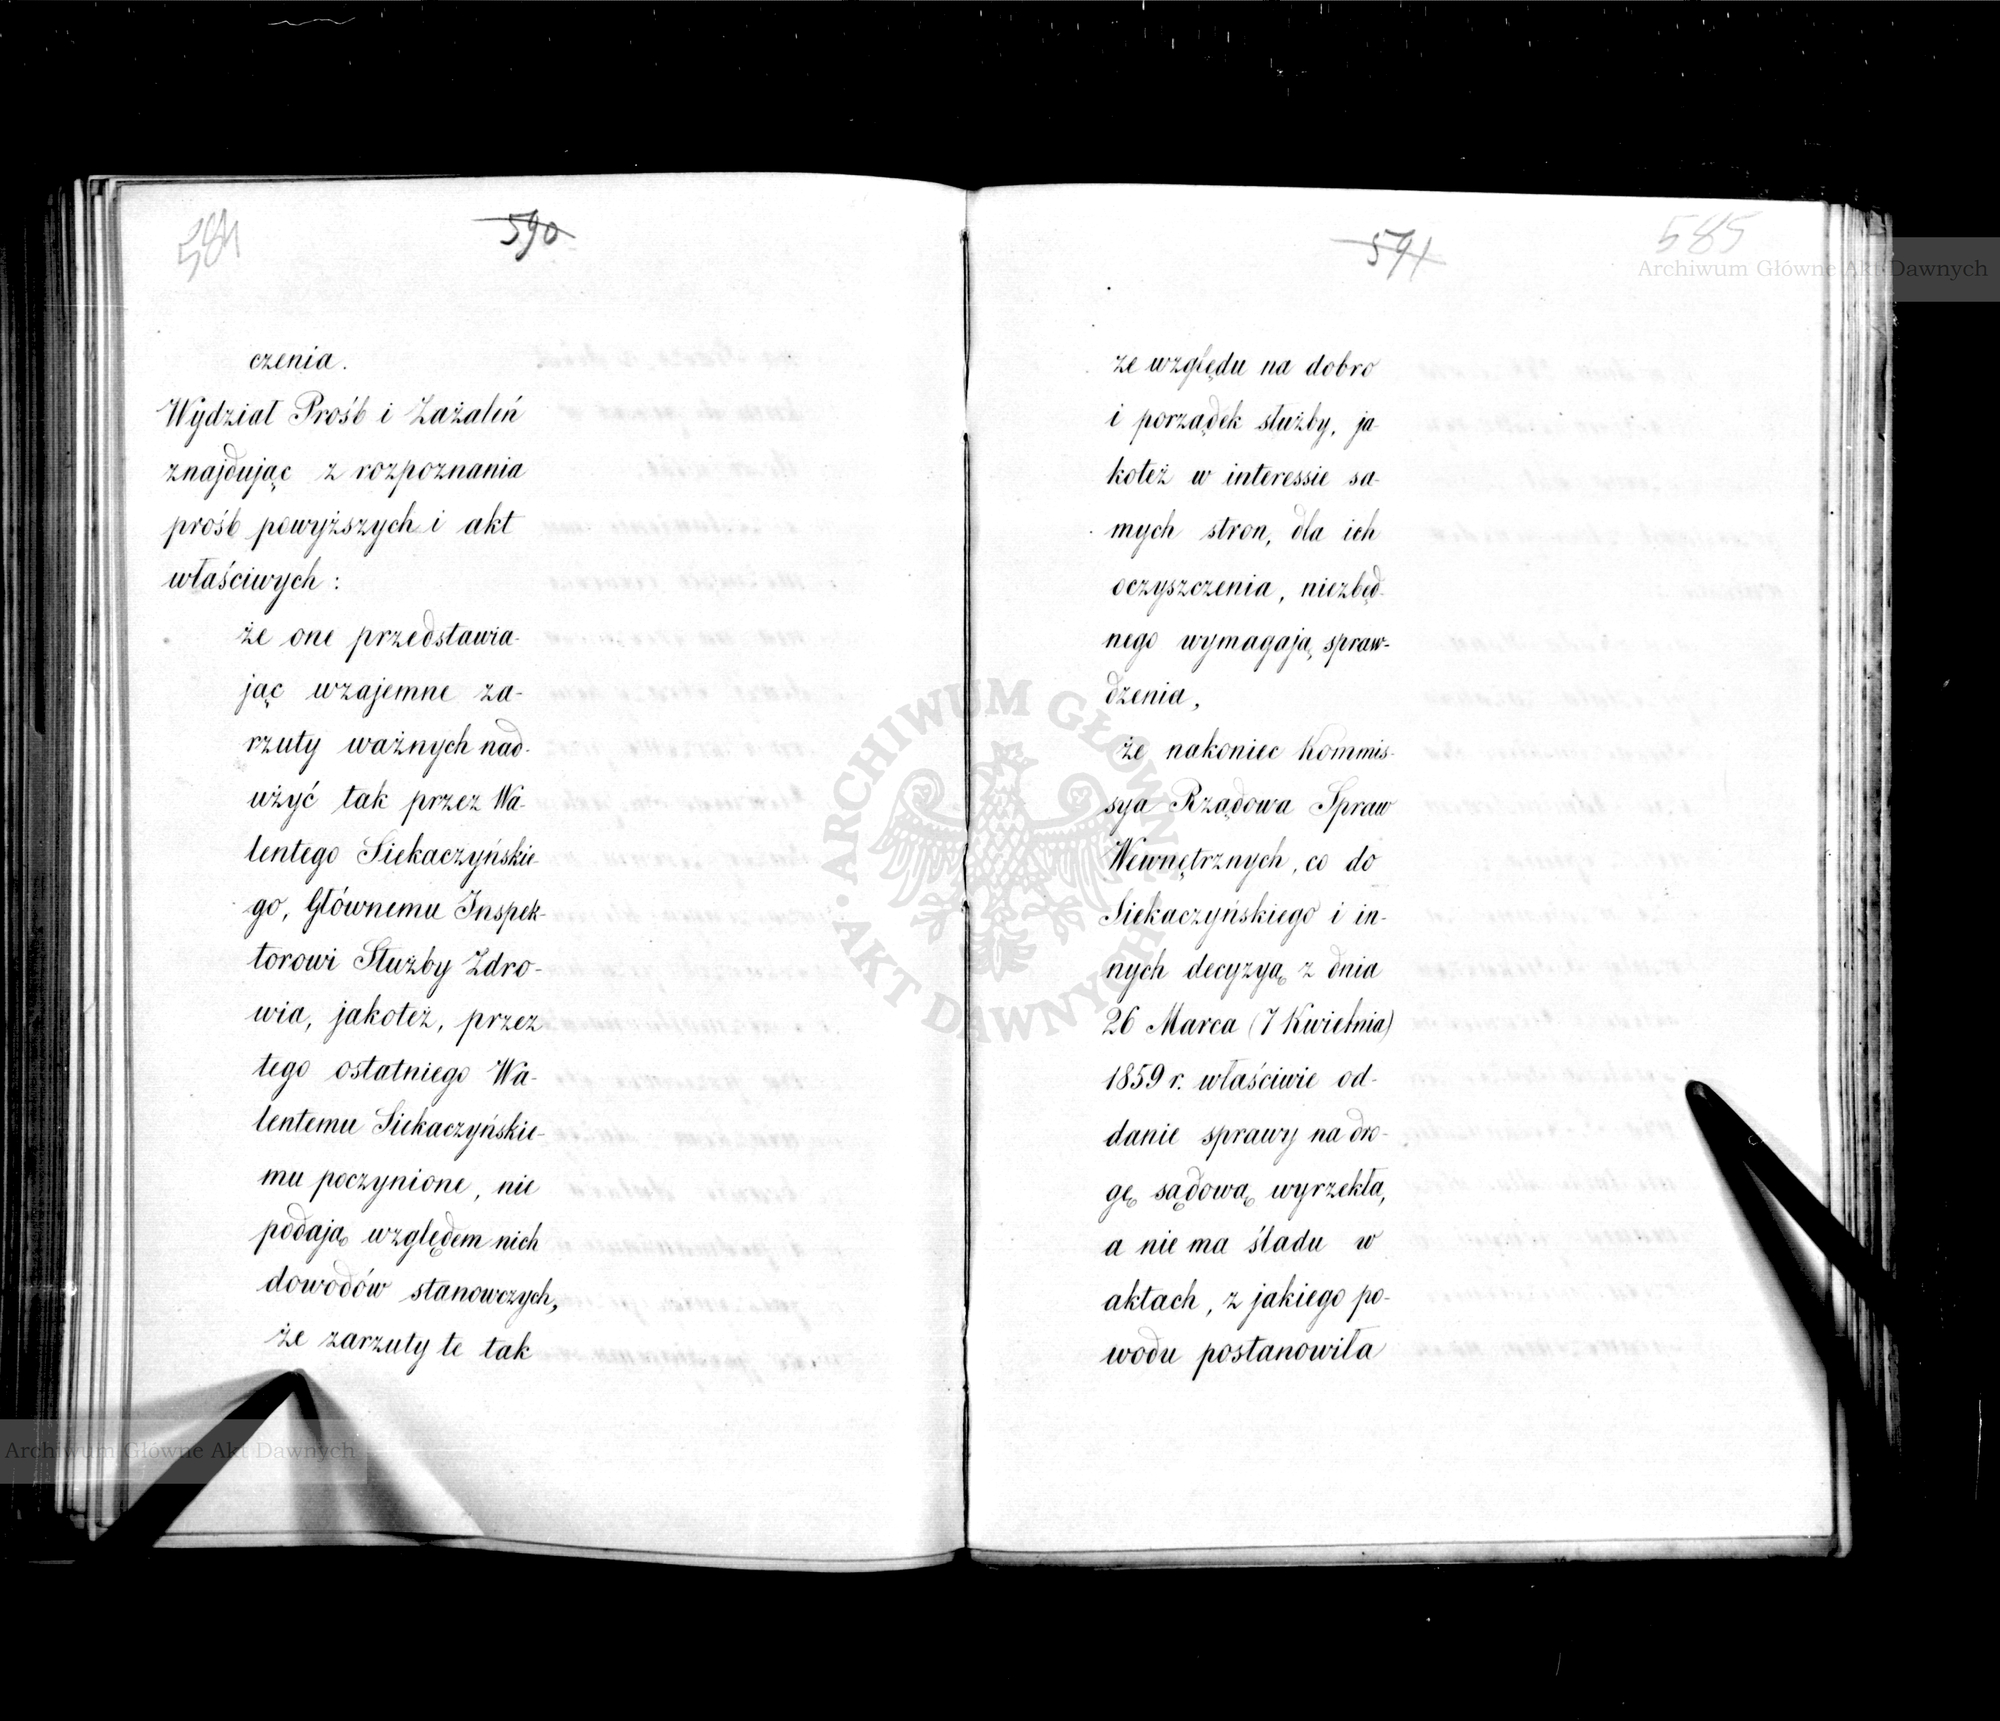 584
590
czenia.
Wydział Prośb i Zażaleń
znajdując z rozpoznania
prośb powyższych i akt
właściwych:
że one przedstawia-
jąc wzajemne za-
rzuty ważnych nad-
użyć tak przez Wa-
lentego Siekaczyńskie-
go, Głównemu Inspek-
torowi Służby Zdro-
wia, jakoteż, przez
tego ostatniego Wa-
lentemu Siekaczyńskie-
mu poczynione, nie
podają względem nich
dowodów stanowczych,
że zarzuty te tak
591
585
ze względu na dobro
i porządek służby, ja-
koteż w interessie sa-
mych stron, dla ich
oczyszczenia, niezbęd-
nego wymagają spraw-
dzenia,
że nakoniec Kommis-
sya Rządowa Spraw
Wewnętrznych, co do
Siekaczyńskiego i in-
nych decyzyą z dnia
26 Marca (7 Kwietnia)
1859 r. właściwie od-
danie sprawy na dro-
gę sądową wyrzekła,
a nie ma śladu w
aktach, z jakiego po-
wodu postanowiła
Archiwum Główne Akt Dawnych
ARCHIWUM GŁÓWNE AKT DAWNYCH
Archiwum Główne Akt Dawnych